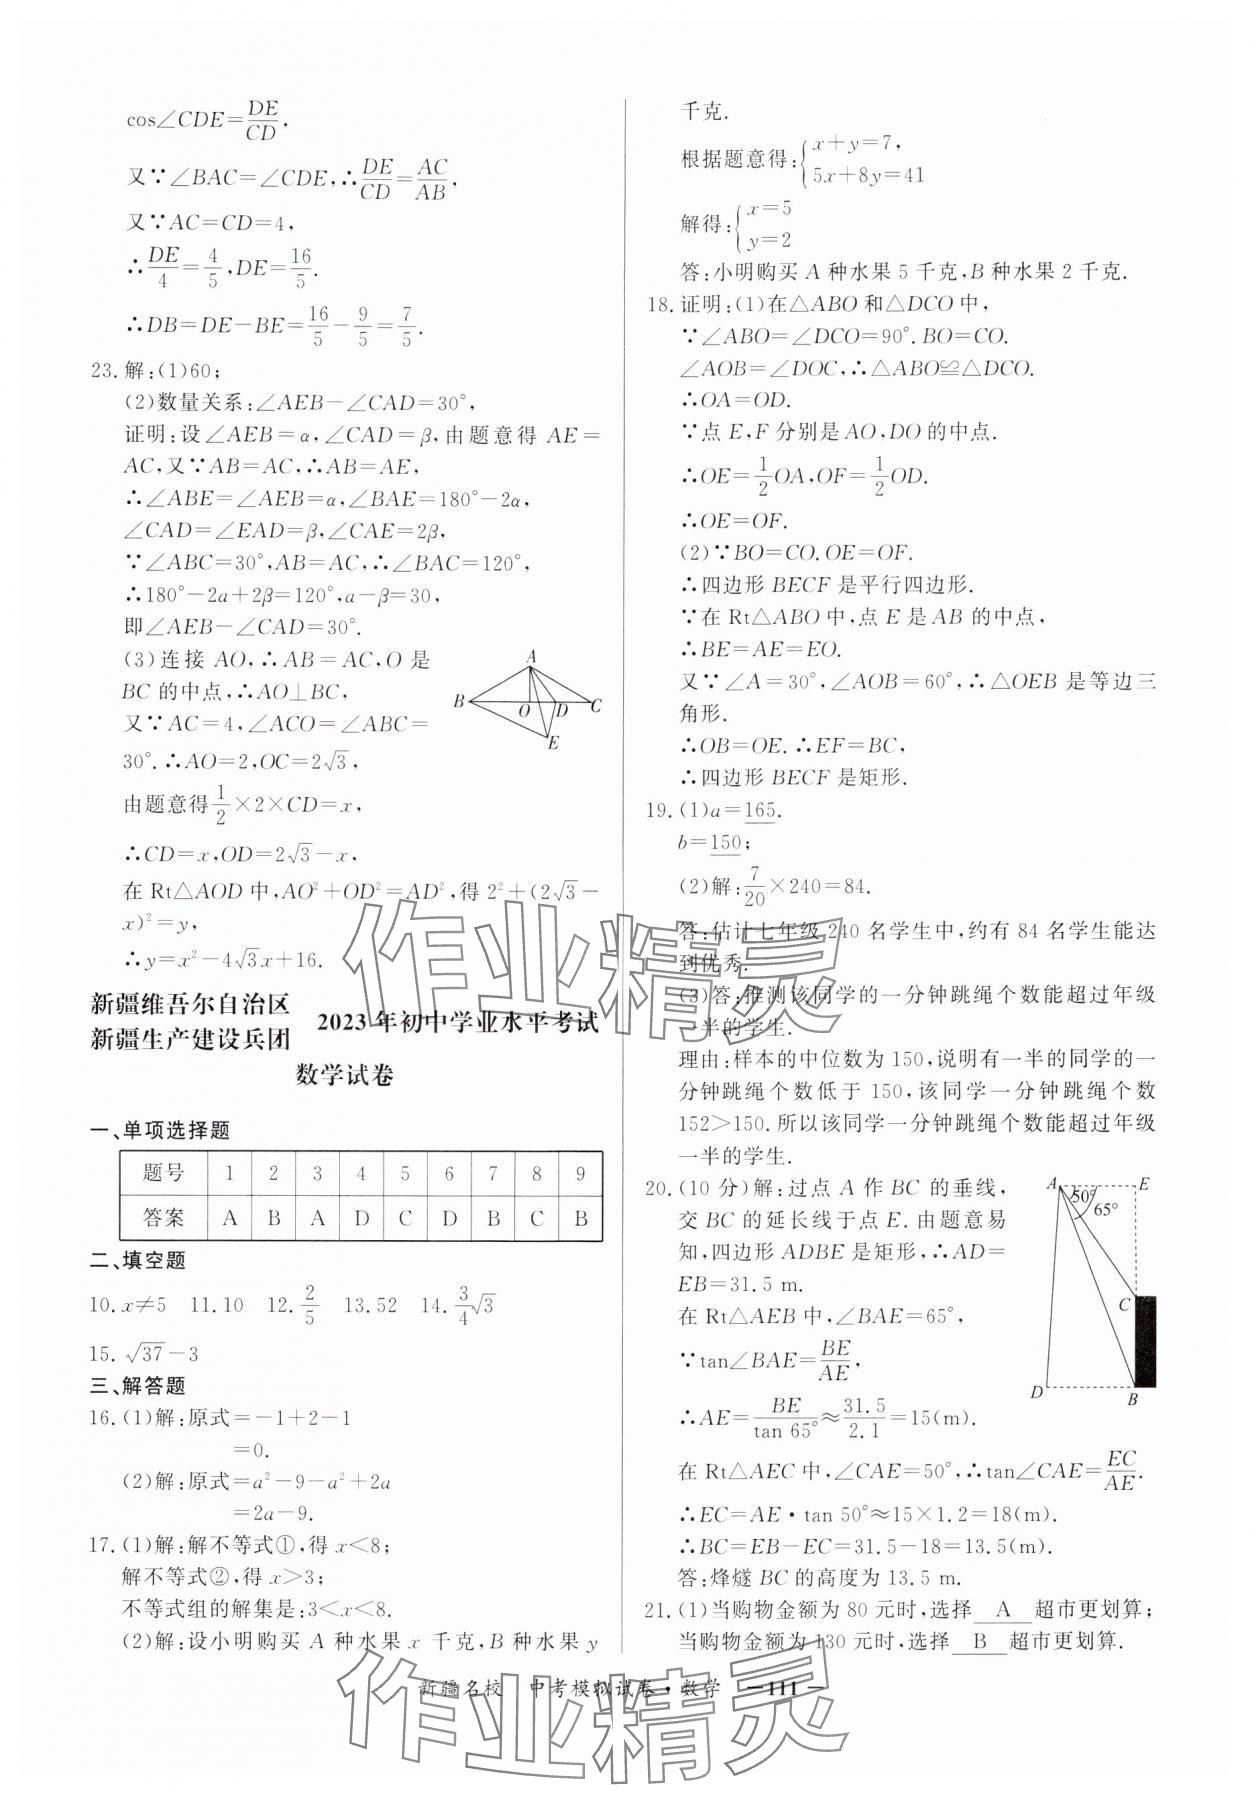 cos∠CDE=DE/CD,
又∵∠BAC=∠CDE,∴DE/CD=AC/AB,
又∵AC=CD=4,
∴DE/4=4/5,DE=16/5.
∴DB=DE-BE=16/5-9/5=7/5.
23.解:(1)60;
(2)数量关系:∠AEB-∠CAD=30°,
证明:设∠AEB=α,∠CAD=β,由题意得 AE=
AC,又∵AB=AC,∴AB=AE,
∴∠ABE=∠AEB=α,∠BAE=180°-2α,
∠CAD=∠EAD=β,∠CAE=2β,
∵∠ABC=30°,AB=AC,∴∠BAC=120°,
∴180°-2a+2β=120°,a-β=30,
即∠AEB-∠CAD=30°.
(3)连接 AO,∴AB=AC,O 是
BC 的中点,∴AO⊥BC,
又∵AC=4,∠ACO=∠ABC=
30°.∴AO=2,OC=2√3,
由题意得1/2×2×CD=x,
∴CD=x,OD=2√3-x,
在 Rt△AOD 中,AO²+OD²=AD²,得 2²+(2√3-
x)²=y,
∴y=x²-4√3x+16.
A
B
O
D
C
E
新疆维吾尔自治区
新疆生产建设兵团
2023年初中学业水平考试
数学试卷
一、单项选择题
题号 1 2 3 4 5 6 7 8 9
答案 A B A D C D B C B
二、填空题
10.x≠5 11.10 12.2/5 13.52 14.3/4√3
15.√37-3
三、解答题
16.(1)解:原式=-1+2-1
=0.
(2)解:原式=a²-9-a²+2a
=2a-9.
17.(1)解:解不等式①,得 x<8;
解不等式②,得 x>3;
不等式组的解集是:3<x<8.
(2)解:设小明购买 A 种水果 x 千克,B 种水果 y
千克.
根据题意得:{x+y=7,
5x+8y=41
解得:{x=5
y=2
答:小明购买 A 种水果 5 千克,B 种水果 2 千克.
18.证明:(1)在△ABO 和△DCO 中,
∵∠ABO=∠DCO=90°.BO=CO.
∠AOB=∠DOC,∴△ABO≌△DCO.
∴OA=OD.
∵点 E,F 分别是 AO,DO 的中点.
∴OE=1/2OA,OF=1/2OD.
∴OE=OF.
(2)∵BO=CO.OE=OF.
∴四边形 BECF 是平行四边形.
∵在 Rt△ABO 中,点 E 是 AB 的中点,
∴BE=AE=EO.
又∵∠A=30°,∠AOB=60°,∴△OEB 是等边三
角形.
∴OB=OE.∴EF=BC,
∴四边形 BECF 是矩形.
19.(1)a=165.
b=150;
(2)解:7/20×240=84.
答:估计七年级 240 名学生中,约有 84 名学生能达
到优秀.
(3)答:推测该同学的一分钟跳绳个数能超过年级
一半的学生.
理由:样本的中位数为 150,说明有一半的同学的一
分钟跳绳个数低于 150,该同学一分钟跳绳个数
152>150.所以该同学一分钟跳绳个数能超过年级
一半的学生.
20.(10 分)解:过点 A 作 BC 的垂线,
交 BC 的延长线于点 E.由题意易
知,四边形 ADBE 是矩形,∴AD=
EB=31.5 m.
在 Rt△AEB 中,∠BAE=65°,
∵tan∠BAE=BE/AE,
∴AE=BE/tan 65°≈31.5/2.1=15(m).
在 Rt△AEC 中,∠CAE=50°,∴tan∠CAE=EC/AE.
∴EC=AE·tan 50°≈15×1.2=18(m).
∴BC=EB-EC=31.5-18=13.5(m).
答:烽燧 BC 的高度为 13.5 m.
A
50°
65°
E
C
D
B
21.(1)当购物金额为 80 元时,选择 A 超市更划算;
当购物金额为130 元时,选择 B 超市更划算.
新疆名校 中考模拟试卷·数学 —111—
作业精灵
作业精灵